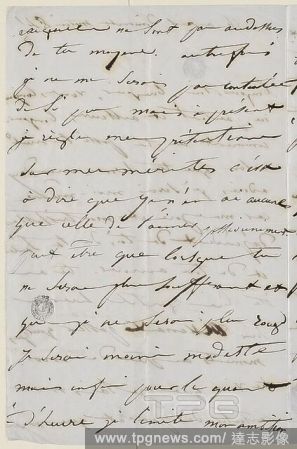 ne sont pas au dessus
de tes moyens. autrefois
je ne me serois pas contentée
de si peu mais à présent
je règle mes prétentions
sur mes mérites c'est
à dire que je n'en ai aucune
que celle de t'aimer
peut être que lorsque tu
ne seras plus souffrant et
que je ne serai plus
je serai moins modeste
mais enfin pour le quart
d'heure je limite mon ambition
TPG
www.tpgnews.com / 達志影像